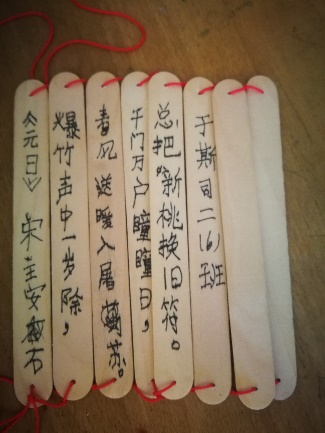 《元日》 宋 王安石
爆竹声中一岁除，
春风送暖入屠苏。
千门万户瞳瞳日，
总把新桃换旧符。
于斯司二(6)班